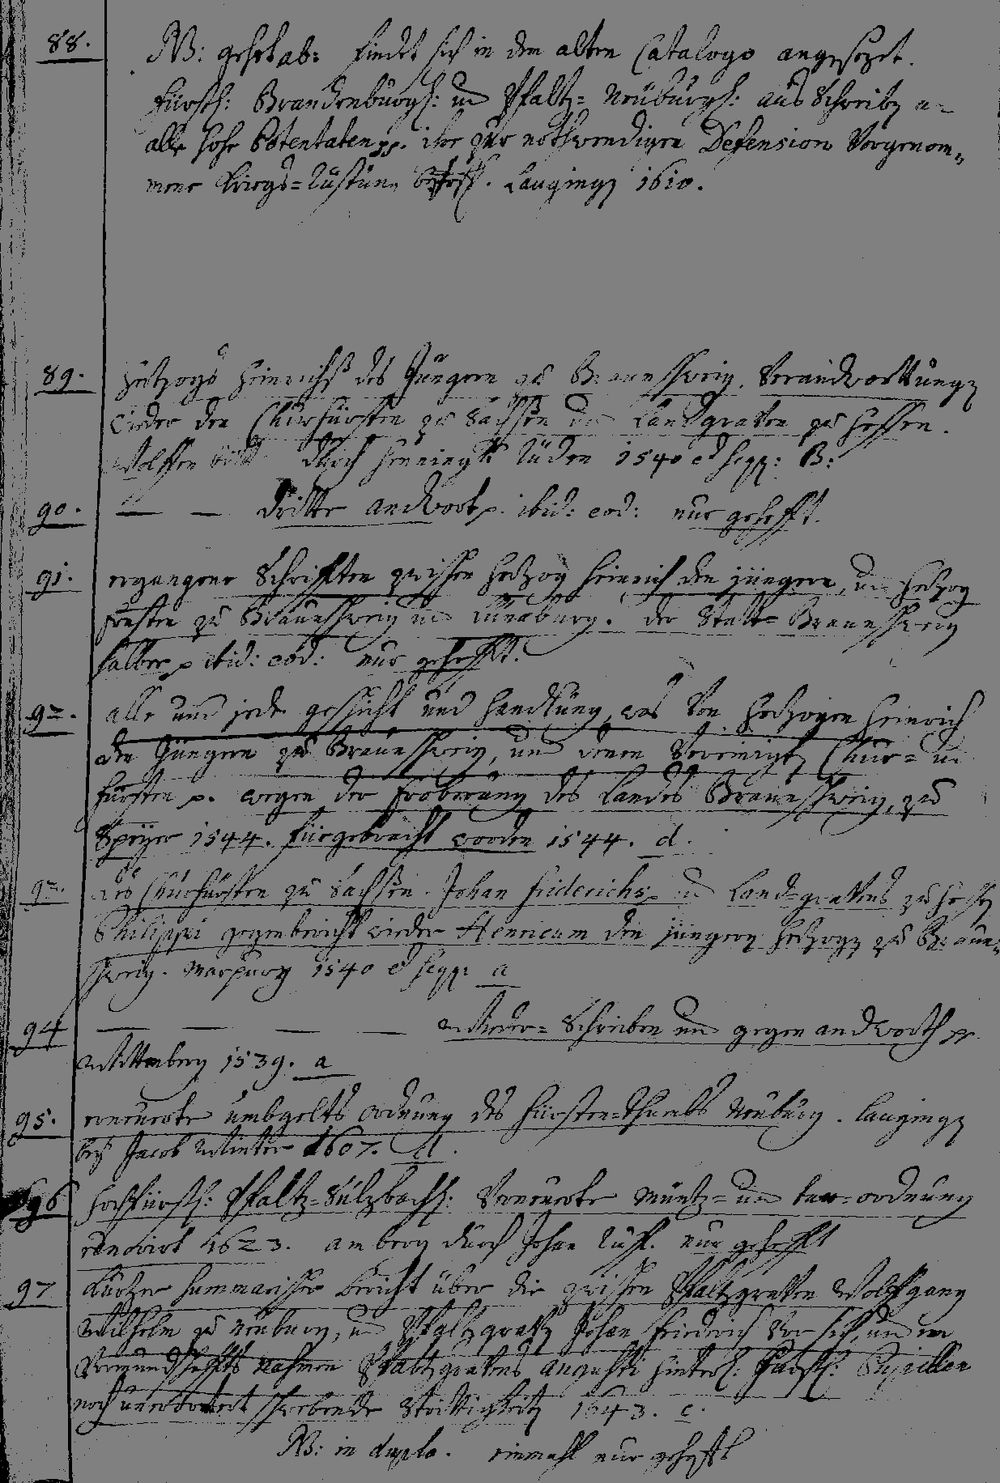 88. NB: gehet ab: findet sich in dem alten Catalogo angesezet.
Fürstl: Brandenburgl: und Pfaltz= Neuburgl: ausschreiben an
alle hohe Potentaten pp. ihre zur nothwendigen Defension Vorgenom=
mene Kriegs=Rüstung betreff. Laugingen 1610.
89. Hertzogs Heinrichs des Jüngern zu Braunschweig. Verandworttungen
wieder den Churfürsten zu Sachsen und Landgraven zu Hessen.
Wolffen durch Henningk Rüden 1540 et seqq: B:
90. — — dritte andwort p. ibid: eod: nur gehefft.
91. ergangene Schrifften zwischen Hertzog Heinrich den jüngern, und Hertzog
Ernsten zu Braunschweig und Lüneburg. der Statt= Braunschweig
halber p ibid: eod: nur gehefft.
92. alle und jede geschicht und Handlung, was von Hertzogen Heinrich
den Jüngern zu Braunschweig, und denen Vereinigten Chur= und
Fürsten p. wegen der Eroberung des Landes Braunschweig, zu
Speyer 1544. fürgebracht worden 1544. d.
des Churfürsten zu Sachsen. Johan friderichs und Land=gravens zu Hessen
Philippi gegenbericht wieder Henricum den jüngern Hertzogen zu Braun=
schweig. Marpurg 1540 et seqq: a
94 — — — — Wieder=Schreiben und gegen andworth pp.
Wittenberg 1539. a
95. erneuerte Umbgelts Ordnung des Fürsten=thumbs Neuburg. Laugingen
bey Jacob Winter 1607. d.
96 Hochfürstl: Pfaltz=Sulzbachl: Verneuerte Müntz= und tax=ordnung
1623. Amberg durch Johan Ruff. nur gehefft
97 Kurtzer Summarischer Bericht über die zwischen Pfaltzgraven Wolffgang
Wilhelm zu Neuburg, und Pfaltzgraven Johan Friedrich vor sich, und in
Vormundschaffts Nahmen Pfaltzgravens Augusti hinterl: Fürstl: Pupillen
noch unerörtert schwebende Strittigkeiten 1643. c.
NB: in duplo. einmahl nur gehefft